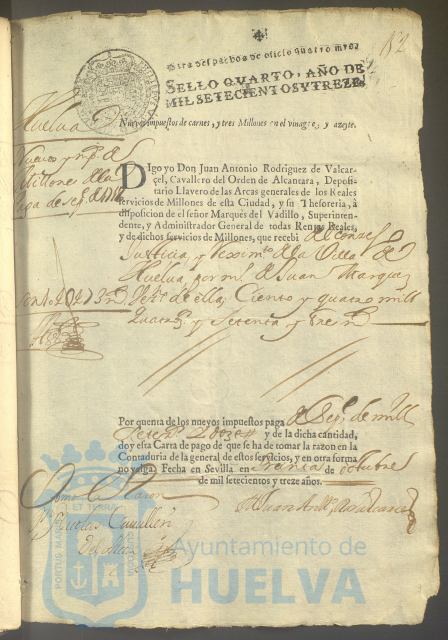 152
Para despachos de oficio quatro mrs
SELLO QVARTO, AÑO DE
MIL SETECIENTOS Y TREZE.
Huelva
Nuevos impuestos de carnes, y tres Millones en el vinagre, y azeyte.
Nuevos ymp.s de
Millones de la
Paga de sep.e de 1712
Digo yo Don Juan Antonio Rodriguez de Valcar-
çel, Cavallero del Orden de Alcantara, Deposi-
tario Llavero de las Arcas generales de los Reales
servicios de Millones de esta Ciudad, y su Thesoreria, à
disposicion de el señor Marquès del Vadillo, Superinten-
dente, y Administrador General de todas Rentas Reales,
y de dichos servicios de Millones, que recebì del Conzejo
Justicia y Regim.to de la Villa de
Huelva por m.o de Juan Marquez
Vez.o de ella, Ciento y quatro mill
Quatro.s y Setenta y tres m.s
Son 104U473 m.s
Por quenta de los nuevos impuestos paga de Sep.e de mill
Setez.s y doze y de la dicha cantidad,
doy esta Carta de pago de que se ha de tomar la razon en la
Contaduria de la general de estos servicios, y en otra forma
no valga. Fecha en Sevilla en treinta de octubre
de mil setecientos y treze años.
Tomè la Razon
D Juan Ant.o R. de Valcarcel
Nicolas Cavallero
PORTUS MARIS ET TERRAE
Ayuntamiento de
HUELVA